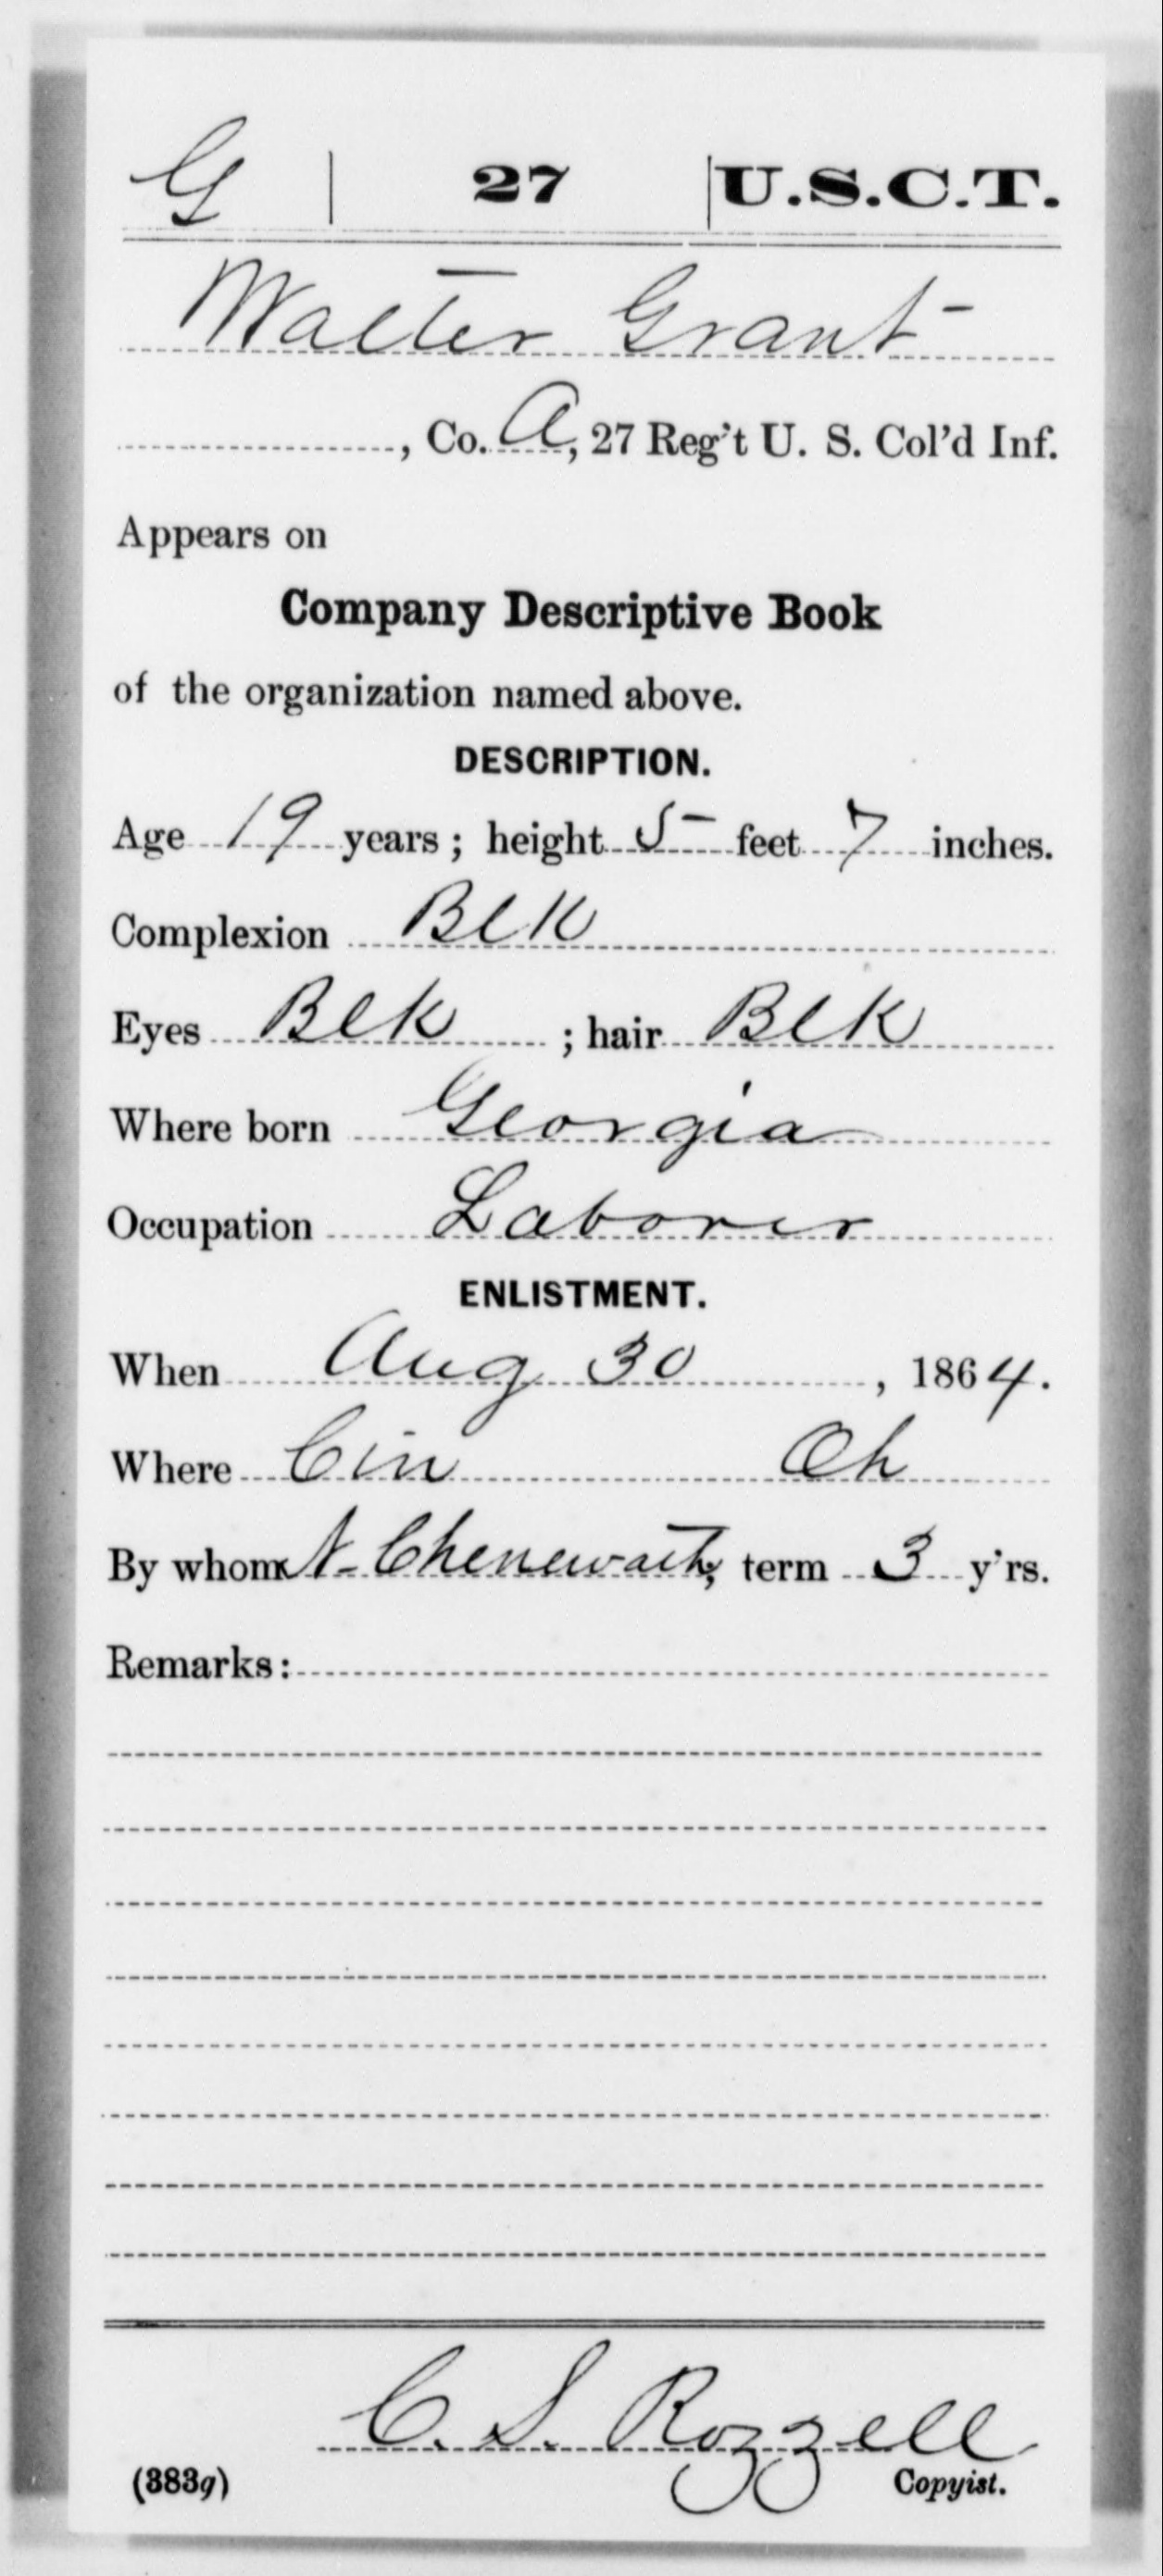 G | 27 | U.S.C.T.
Walter Grant
, Co. A, 27 Reg't U. S. Col'd Inf.
Appears on
Company Descriptive Book
of the organization named above.
DESCRIPTION.
Age 19 years; height 5 feet 7 inches.
Complexion Blk
Eyes Blk ; hair Blk
Where born Georgia
Occupation Laborer
ENLISTMENT.
When Aug 30, 1864.
Where Cin Oh
By whom N. Chenewath; term 3 y'rs.
Remarks:
C. S. Rozzell
(383g) Copyist.